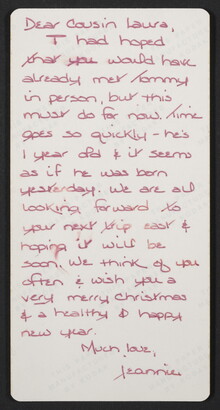 Dear Cousin Laura,
I had hoped
that you would have
already met Tommy
in person, but this
must do for now. Time
goes so quickly - he's
1 year old & it seems
as if he was born
yesterday. We are all
looking forward to
your next trip east &
hoping it will be
soon. We think of you
often & wish you a
very merry Christmas
& a healthy & happy
new year.
Much love,
Jeannie